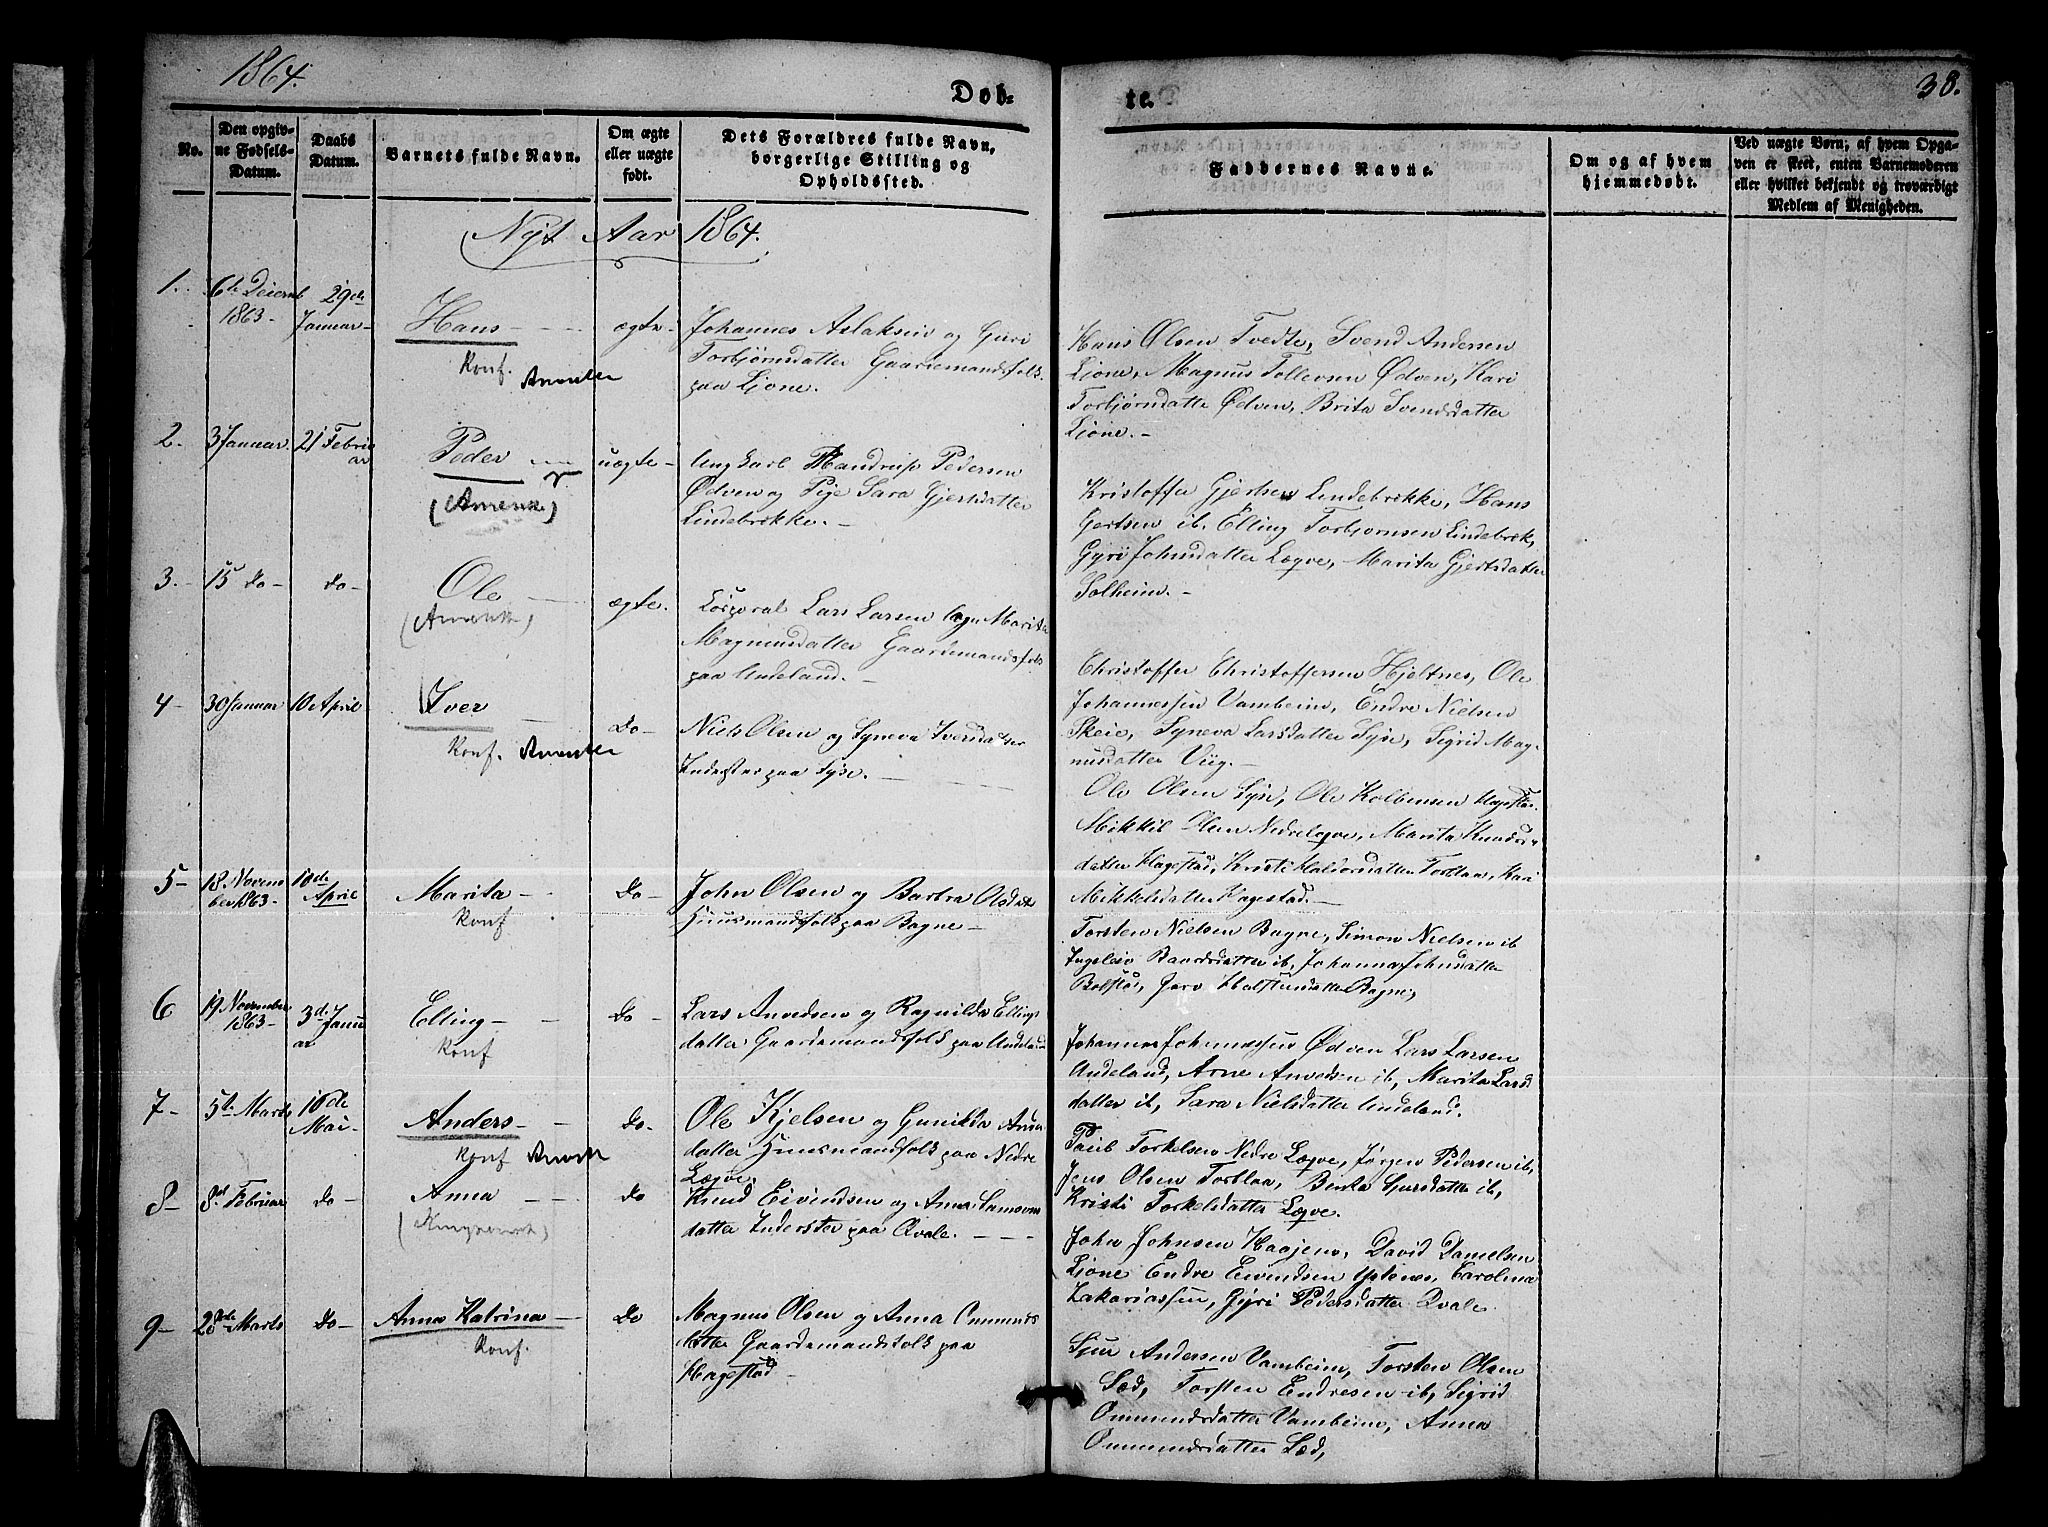 1864.
Døb-
te.
38.
No.
Den opgiv-
ne Fødsels-
Datum.
Daabs
Datum.
Barnets fulde Navn.
Om ægte
eller uægte
født.
Dets Forældres fulde Navn,
borgerlige Stilling og
Opholdssted.
Faddernes Navne.
Om og af hvem
hjemmedøbt.
Ved uægte Børn; af hvem Opga-
ven er skeet, enten Barnemoderen
eller hvilket bekjendt og troværdigt
Medlem af Menigheden.
Nyt Aar 1864.
1.
6te
1863-
29de
Januar-
Hans
Konf.
ægte-
Johannes Aslaksen og Guri
Torbjørnsdatter
paa Ljone.
Hans Olsen Tvedte, Svend Andersen
Ljone, Magnus Tollevsen Ødven, Kari
Torbjørnsdatte Ødven, Brita Svendsdatter
Ljone.-
2.
3 Januar.
21 Febru
ar
Peder
uægte-
Ungkarl Mandrup Pedersen
Ødven og Pige Sara Gjertsdatter
Lindebrække.-
Kristoffer Gjertsen Lindebrække, Hans
Gertsen ib, Elling Torbjørnsen Lindebræk,
Gyri Johnsdatter Læqve, Marita Gjertsdatter
Solheim.-
3.-
15 do-
do-
Ole
ægte.
Korporal Lars Larsen og Marita
Magnusdatter Gaardmandsfolk
paa Undeland.-
Christoffer Christoffersen Hjeltnes, Ole
Johannessen Vambeim, Endre Nielsen
Skeie, Syneva Larsdatter Syse, Sigrid Mag-
nusdatter Viig.-
4-
30 Januar
10 April
Iver
Konf.
do-
Niels Olsen og Syneva Iversdatter
Inderster paa Syse.
Ole Olsen Syse, Ole Kolbensen Hagestad
Mikkel Olsen Nedrelæqve, Marita Knuds-
datter Hagestad, Kristi Haldorsdatter Torblaa, Kari
Mikkelsdatter Hagestad.-
5-
18 Novem
ber 1863-
10de
April
Marita
Konf
do-
John Olsen og Barbra Olsdatter
Huusmandsfolk paa Bagne-
Torsten Nielsen Bagne, Simon Nielsen ib
Ingeleiv Baardsdatter ib, Johanna Johnsdatter
Bolstad, Halstensdatter Bagne,
6
19 November
1863-
3d. Janu
ar
Elling
Konf
do-
Lars Anvedsen og Ragnilda Ellings
datter Gaardemandsfolk paa Undeland
Johannes Johannessen Ødven Lars Larsen
Undeland, Arne Anvedsen ib, Marita Lars
datter ib, Sara Nielsdatter Undeland.
7-
5te Marts
16de
Mai-
Anders
Konf
do-
Ole Kjelsen og Gunilda Arne
datter Huusmandfolk paa Nedre
Læqve.
Torkelsen Nedre Læqve, Jørgen Pedersen ib,
Jens Olsen Torblaa, Sjursdatter ib,
Kristi Torkelsdatter Læqve.
8-
8d. Februar
do-
Anna
do
Knud Eivindsen og Anna Samsons
datter Inderster paa Qvale.
John Johnsen Haajem, David Danielsen
Ljone Endre Eivindsen Ystenes, Carolina
Zakariassen, Gyri Pedersdatter Qvale.
9-
28de Marts
do-
Anna Katrina
Konf.
do
Magnus Olsen og Anna Ommunds
datter Gaardemandsfolk paa
Hagestad-
Sjur Andersen Vambeim, Torsten Olsen
Sæd, Torsten Endresen ib, Sigrid
Ommundsdatter Vambeim, Anna
Ommundsdatter Sæd,